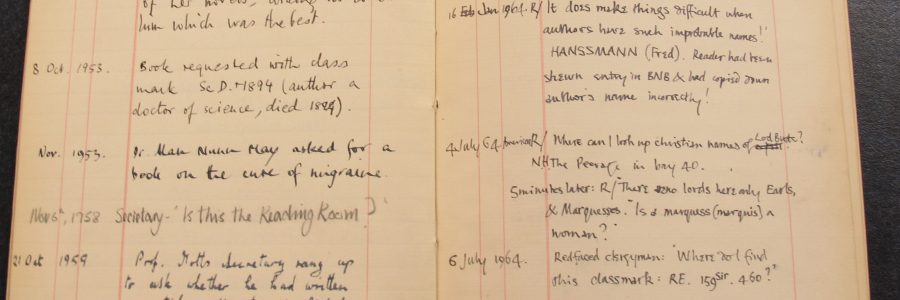 of her novels,
him which was the best.
8 Oct. 1953. Book requested with class
mark Sc D. +1894 (author a
doctor of science, died 1894).
Nov. 1953. Dr. Alan Nunn May asked for a
book on the cure of migraine.
Nov 6th, 1958 Secretary - "Is this the Reading Room?"
21 Oct 1959 Prof. Motts secretary rang up
to ask whether he had written
16 Jan 1964. R/ It does make things difficult when
authors have such improbable names!'
HANSSMANN (Fred). Reader had been
shewn entry in BNB & had copied down
author's name incorrectly!
4 July 64. R/ Where can I look up christian names of Lord Bute?
NH The Peerage in bay 40.
5 minutes later: R/ "There are no lords here only Earls,
& Marquesses. Is a marquess (marquis) a
woman?"
6 July 1964. Redfaced clergyman: "Where do I find
this classmark: RE. 159 Sir. 4.60?"